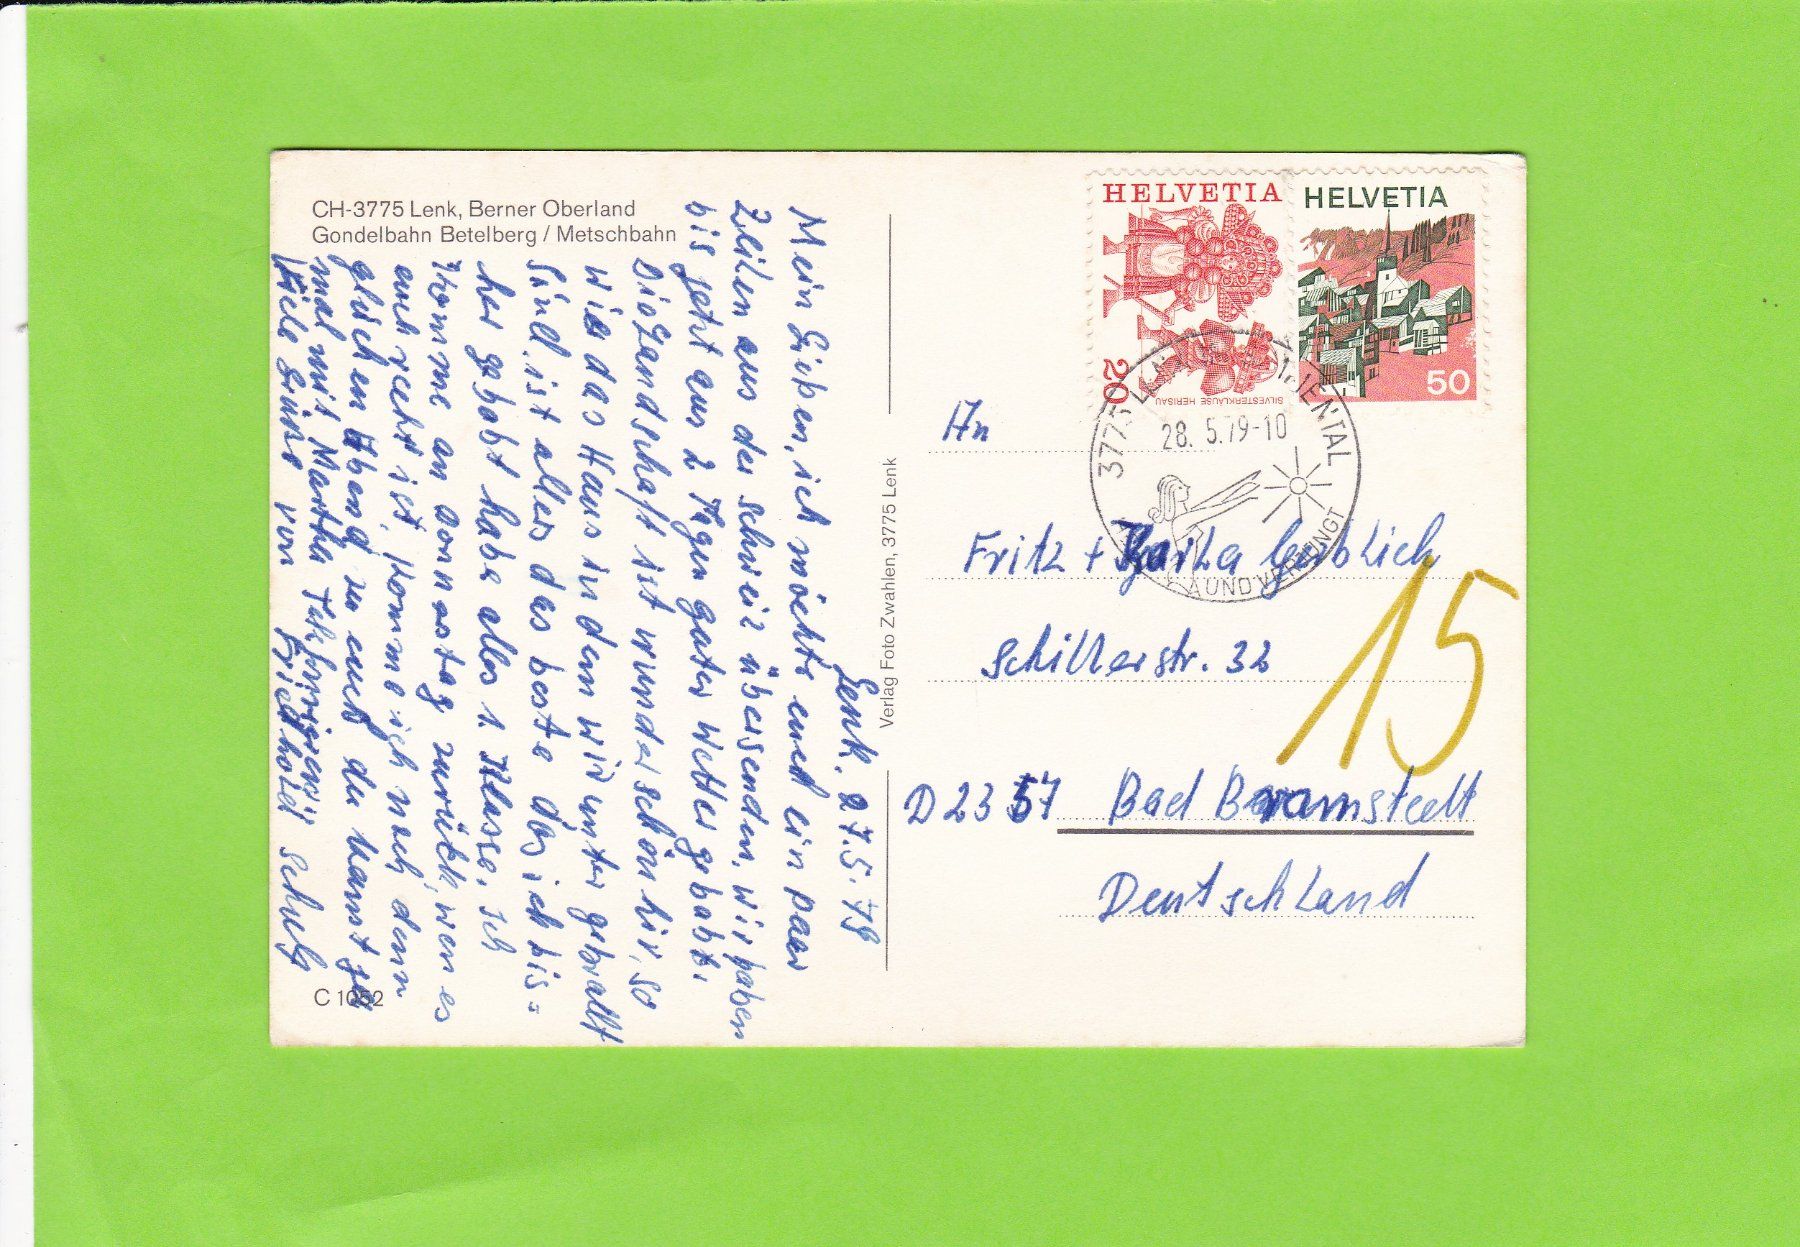 CH-3775 Lenk, Berner Oberland
Gondelbahn Betelberg / Metschbahn
Lenk. 27.5.79
Mein Lieben, ich möchte euch ein paar
Zeilen aus der Schweiz übersenden, wir haben
bis jetzt aus 2 Tagen gutes Wetter gehabt.
Die Landschaft ist wunderschön hir, so
wie das Haus in dem wir unter gebrallt
sind, ist alles das beste das ich bis=
her gehabt habe alles 1. Klasse. Ich
komme an Donnastag zurück, wen es
euch recht ist, komme ich nach den
gleichen Abend zu euch du kannst ja
mal mit Martha
Viele Grüße von Friedhold Schulz
C 1052
Verlag Foto Zwahlen, 3775 Lenk
HELVETIA
20
SILVESTERKLAUSE HERISAU
HELVETIA
50
3775 LENK SIMMENTAL
28. 5.79-10
UND VERJÜNGT
An
Fritz +
Schillerstr. 32
15
D 2357 Bad Bramstedt
Deutschland